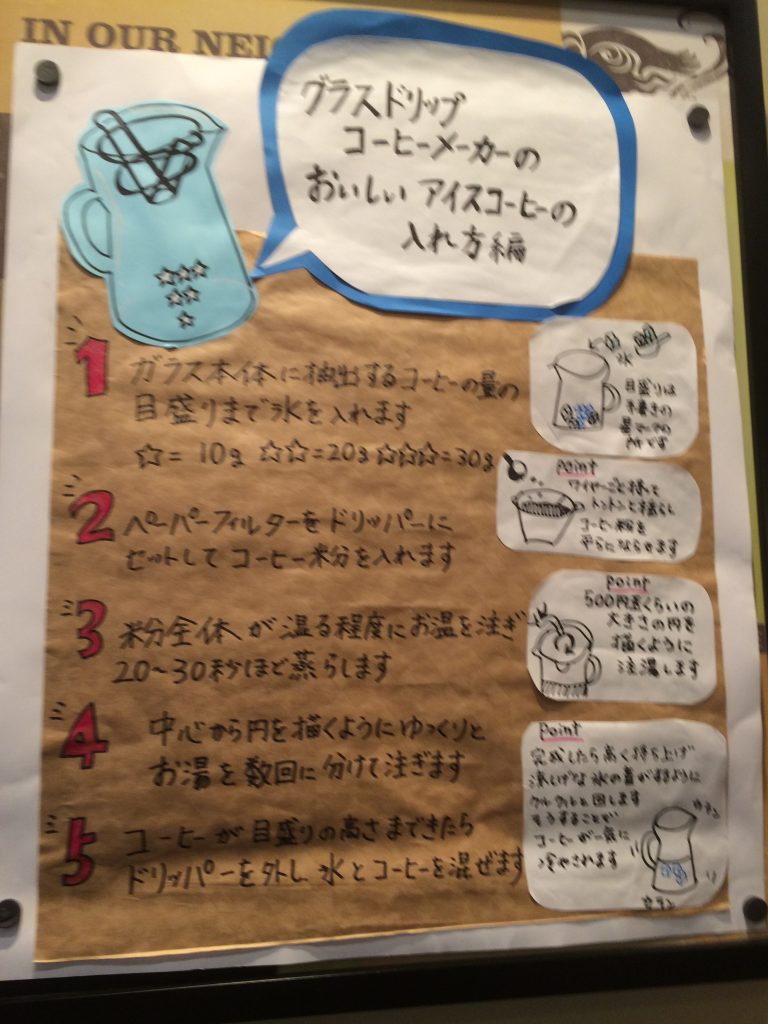 IN OUR NEI
グラスドリップ
コーヒーメーカーの
おいしい アイスコーヒーの
入れ方編
1 ガラス本体に抽出するコーヒーの量の
目盛りまで氷を入れます
☆= 10g ☆☆=20g ☆☆☆=30g
氷
目盛りは
手書きの
星マークの
所です
2 ペーパーフィルターをドリッパーに
セットしてコーヒー粉を入れます
point
トントンと揺らし
コーヒー粉を
平らにならせます
3 粉全体が湿る程度にお湯を注ぎ
20~30秒ほど蒸らします
point
500円玉くらいの
大きさの円を
描くように
注湯します
4 中心から円を描くようにゆっくりと
お湯を数回に分けて注ぎます
5 コーヒーが目盛りの高さまできたら
ドリッパーを外し氷とコーヒーを混ぜます
point
完成したら高く持ち上げ
涼しげな氷の音がするように
クルクルと回します
そうすることが
コーヒーが一気に
冷やされます
カラン
カラン